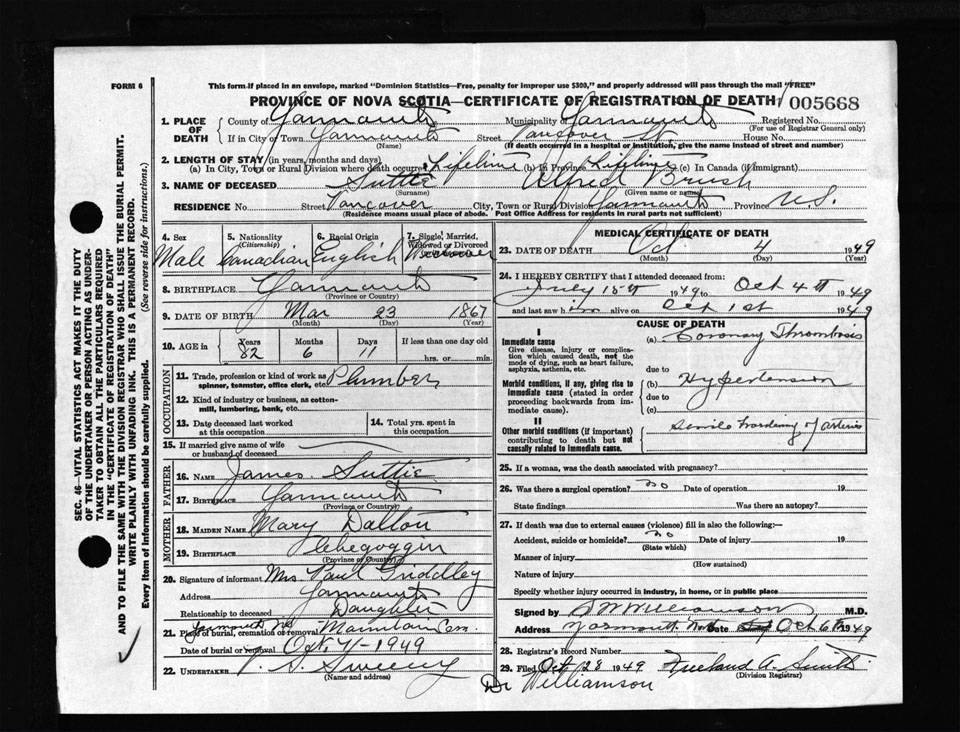 FORM 6
This form if placed in an envelope, marked "Dominion Statistics—Free, penalty for improper use $300," and properly addressed will pass through the mail "FREE"
PROVINCE OF NOVA SCOTIA—CERTIFICATE OF REGISTRATION OF DEATH 005668
1. PLACE OF DEATH
County of Yarmouth Municipality of Yarmouth Registered No.
(For use of Registrar General only)
If in City or Town Yarmouth Street Vancover St House No.
(Name) (If death occurred in a hospital or institution, give the name instead of street and number)
2. LENGTH OF STAY (in years, months and days)
(a) In City, Town or Rural Division where death occurred Lifetime (b) In Province Lifetime (c) In Canada (if immigrant)
3. NAME OF DECEASED Suttie Alfred
(Surname) (Given name or names)
RESIDENCE No. Street Vancover City, Town or Rural Division Yarmouth Province N.S.
(Residence means usual place of abode. Post Office Address for residents in rural parts not sufficient)
4. Sex Male
5. Nationality (Citizenship) Canadian
6. Racial Origin English
7. Single, Married, Widowed or Divorced Widower
8. BIRTHPLACE Yarmouth
(Province or Country)
9. DATE OF BIRTH Mar 23 1867
(Month) (Day) (Year)
10. AGE in Years Months Days If less than one day old
82 6 11 hrs. or min.
OCCUPATION
11. Trade, profession or kind of work as spinner, teamster, office clerk, etc. Plumber
12. Kind of industry or business, as cotton-mill, lumbering, bank, etc.
13. Date deceased last worked at this occupation
14. Total yrs. spent in this occupation
15. If married give name of wife or husband of deceased
FATHER
16. NAME James Suttie
17. BIRTHPLACE Yarmouth
(Province or Country)
MOTHER
18. MAIDEN NAME Mary Dalton
19. BIRTHPLACE Chebogguin
(Province or Country)
20. Signature of informant Mrs Paul Gridelley
Address Yarmouth
Relationship to deceased Daughter
21. Place of burial, cremation or removal Yarmouth NS Mountain Cem.
Date of burial or removal Oct. 7/-1949
22. UNDERTAKER V. S. Sweeny
(Name and address)
MEDICAL CERTIFICATE OF DEATH
23. DATE OF DEATH Oct 4 1949
(Month) (Day) (Year)
24. I HEREBY CERTIFY that I attended deceased from:
July 15th 1949 to Oct 4th 1949
and last saw him alive on Oct 1st 1949
CAUSE OF DEATH
I
Immediate cause (a) Coronary Thrombosis
Give disease, injury or complication which caused death, not the mode of dying, such as heart failure, asphyxia, asthenia, etc.
due to
Morbid conditions, if any, giving rise to immediate cause (stated in order proceeding backwards from immediate cause). (b) Hypertension
due to
(c)
II
Other morbid conditions (if important) contributing to death but not causally related to immediate cause. Senile hardening of arteries
25. If a woman, was the death associated with pregnancy?
26. Was there a surgical operation? no Date of operation 19
State findings Was there an autopsy?
27. If death was due to external causes (violence) fill in also the following:—
Accident, suicide or homicide? no Date of injury 19
(State which)
Manner of injury
(How sustained)
Nature of injury
Specify whether injury occurred in industry, in home, or in public place
Signed by S W Williamson M.D.
Address Yarmouth N.S. Date Oct 6th 1949
28. Registrar's Record Number
29. Filed Oct 28 1949 Freeland A. Smith
(Division Registrar)
Dr Williamson
SEC. 46—VITAL STATISTICS ACT MAKES IT THE DUTY
OF THE UNDERTAKER OR PERSON ACTING AS UNDERTAKER TO OBTAIN ALL THE PARTICULARS REQUIRED
IN THE "CERTIFICATE OF REGISTRATION OF DEATH"
AND TO FILE THE SAME WITH THE DIVISION REGISTRAR WHO SHALL ISSUE THE BURIAL PERMIT.
WRITE PLAINLY WITH UNFADING INK. THIS IS A PERMANENT RECORD.
Every item of Information should be carefully supplied. (See reverse side for instructions.)